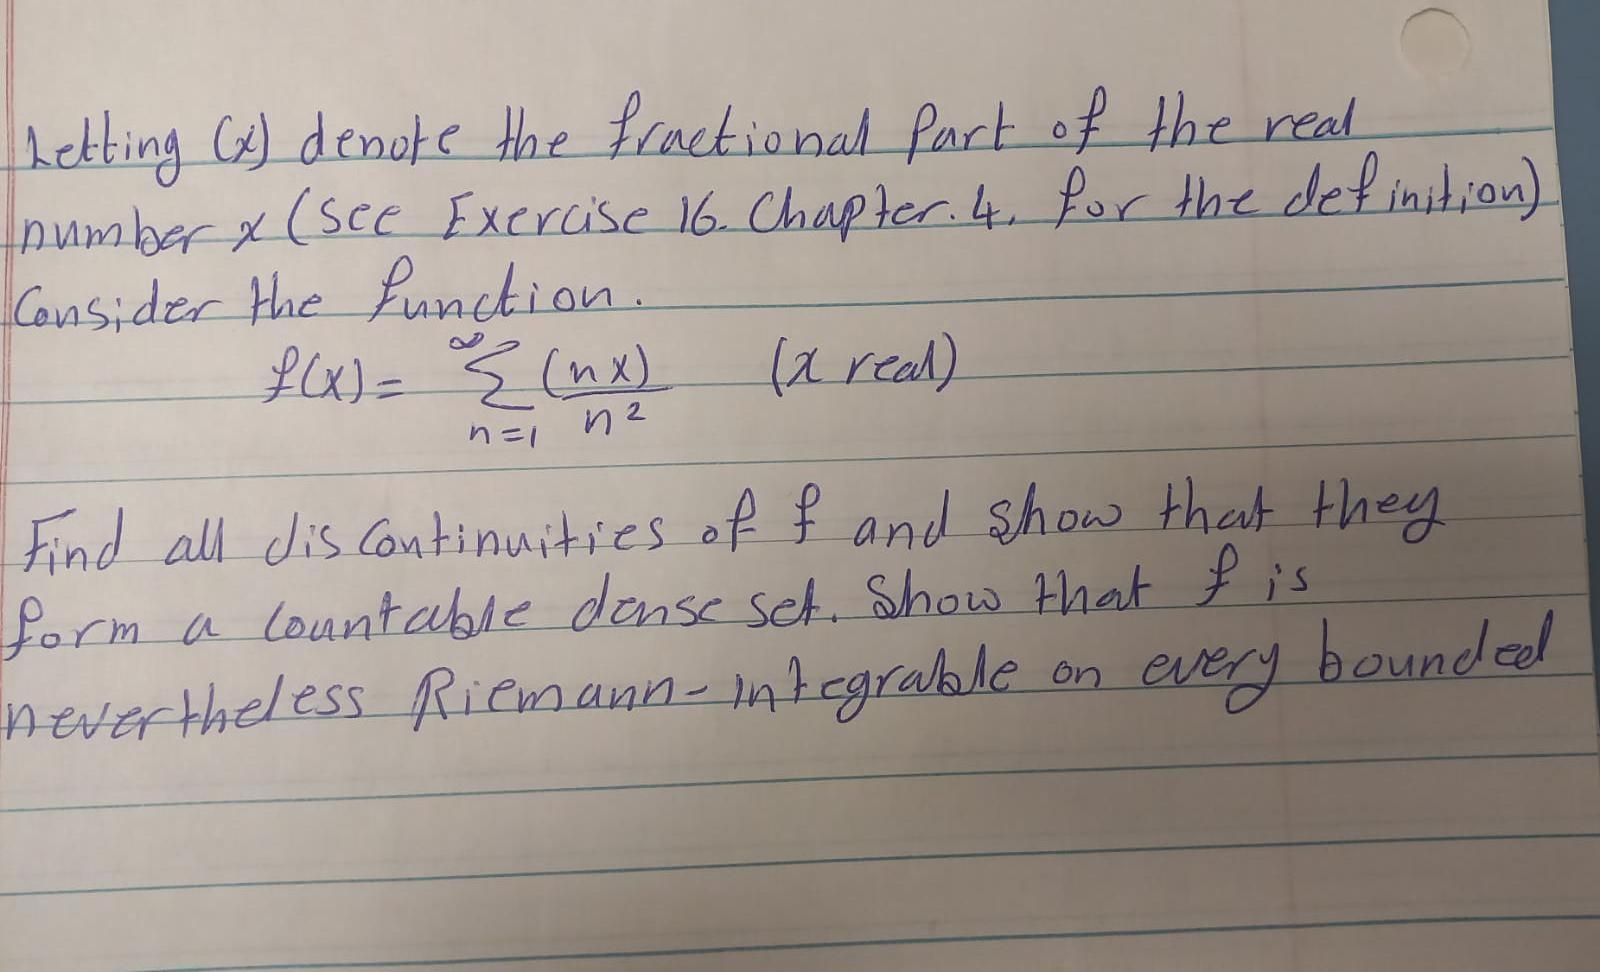 Letting (x) denote the fractional part of the real
number x (see Exercise 16. Chapter. 4. for the definition)
Consider the function.
f(x) = ∞ Σ n=1 (nx) / n² (x real)
Find all discontinuities of f and show that they
form a countable dense set. Show that f is
nevertheless Riemann-integrable on every bounded